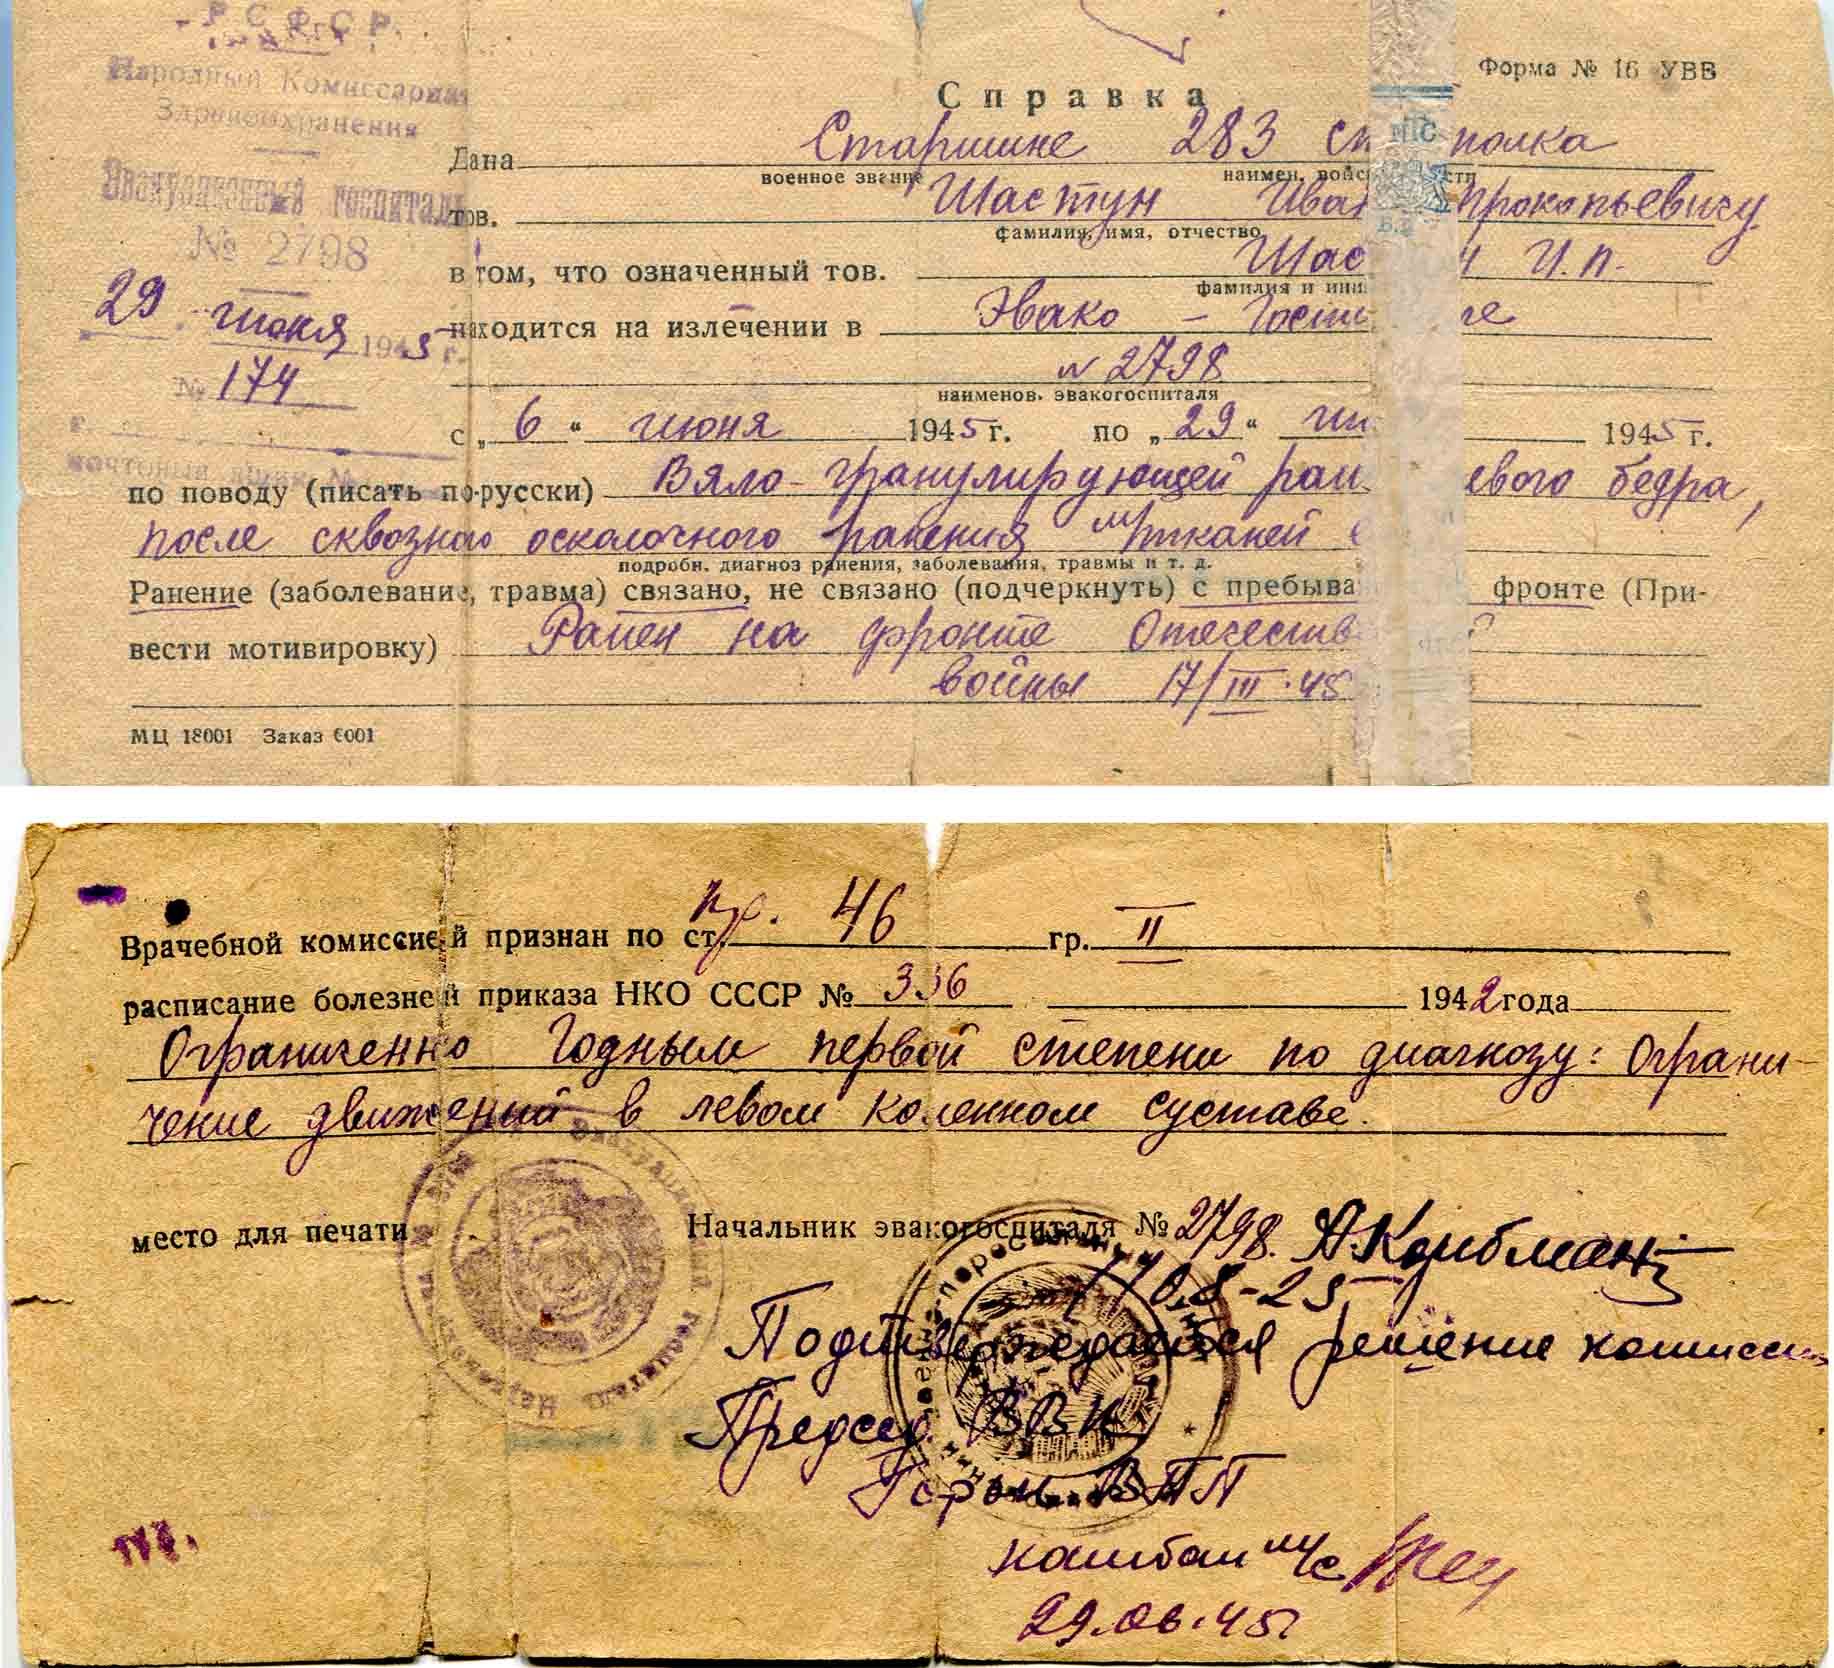 Р.С.Ф.С.Р.
Народный Комиссариат
Здравоохранения
Эвакуационный госпиталь
№ 2798
29 июня 1945 г.
№ 174
г.
почтовый ящик №
Форма № 16 УВВ
Справка
Дана Старшине 283 ст полка
военное звание наимен. войс сти
тов. Шастун Ива Прокопьевичу
фамилия, имя, отчество
в том, что означенный тов. Шас н И.П.
фамилия и ини
находится на излечении в Эвако - Госпи ле
№ 2798
наименов. эвакогоспиталя
с „6“ июня 1945 г. по „29“ ию 1945 г.
по поводу (писать по-русски) Вяло-гранулирующей ран евого бедра,
после сквозного осколочного ранения м/тканей
подробн. диагноз ранения, заболевания, травмы и т. д.
Ранение (заболевание, травма) связано, не связано (подчеркнуть) с пребыва фронте (При-
вести мотивировку) Ранен на фронте Отечеств ой
войны 17/III-45
МЦ 18001 Заказ 6001
Врачебной комиссией признан по ст. пр. 46 гр. II
расписание болезней приказа НКО СССР № 336 1942 года
Ограниченно Годным первой степени по диагнозу: Ограни-
чение движений в левом коленном суставе.
место для печати Начальник эвакогоспиталя № 2798. А.Кацбман
Подтверждается решение комиссии
Председ. ВВК
ВПП
м/с
29.06.45